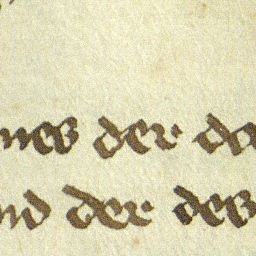 mes der do
nd der des